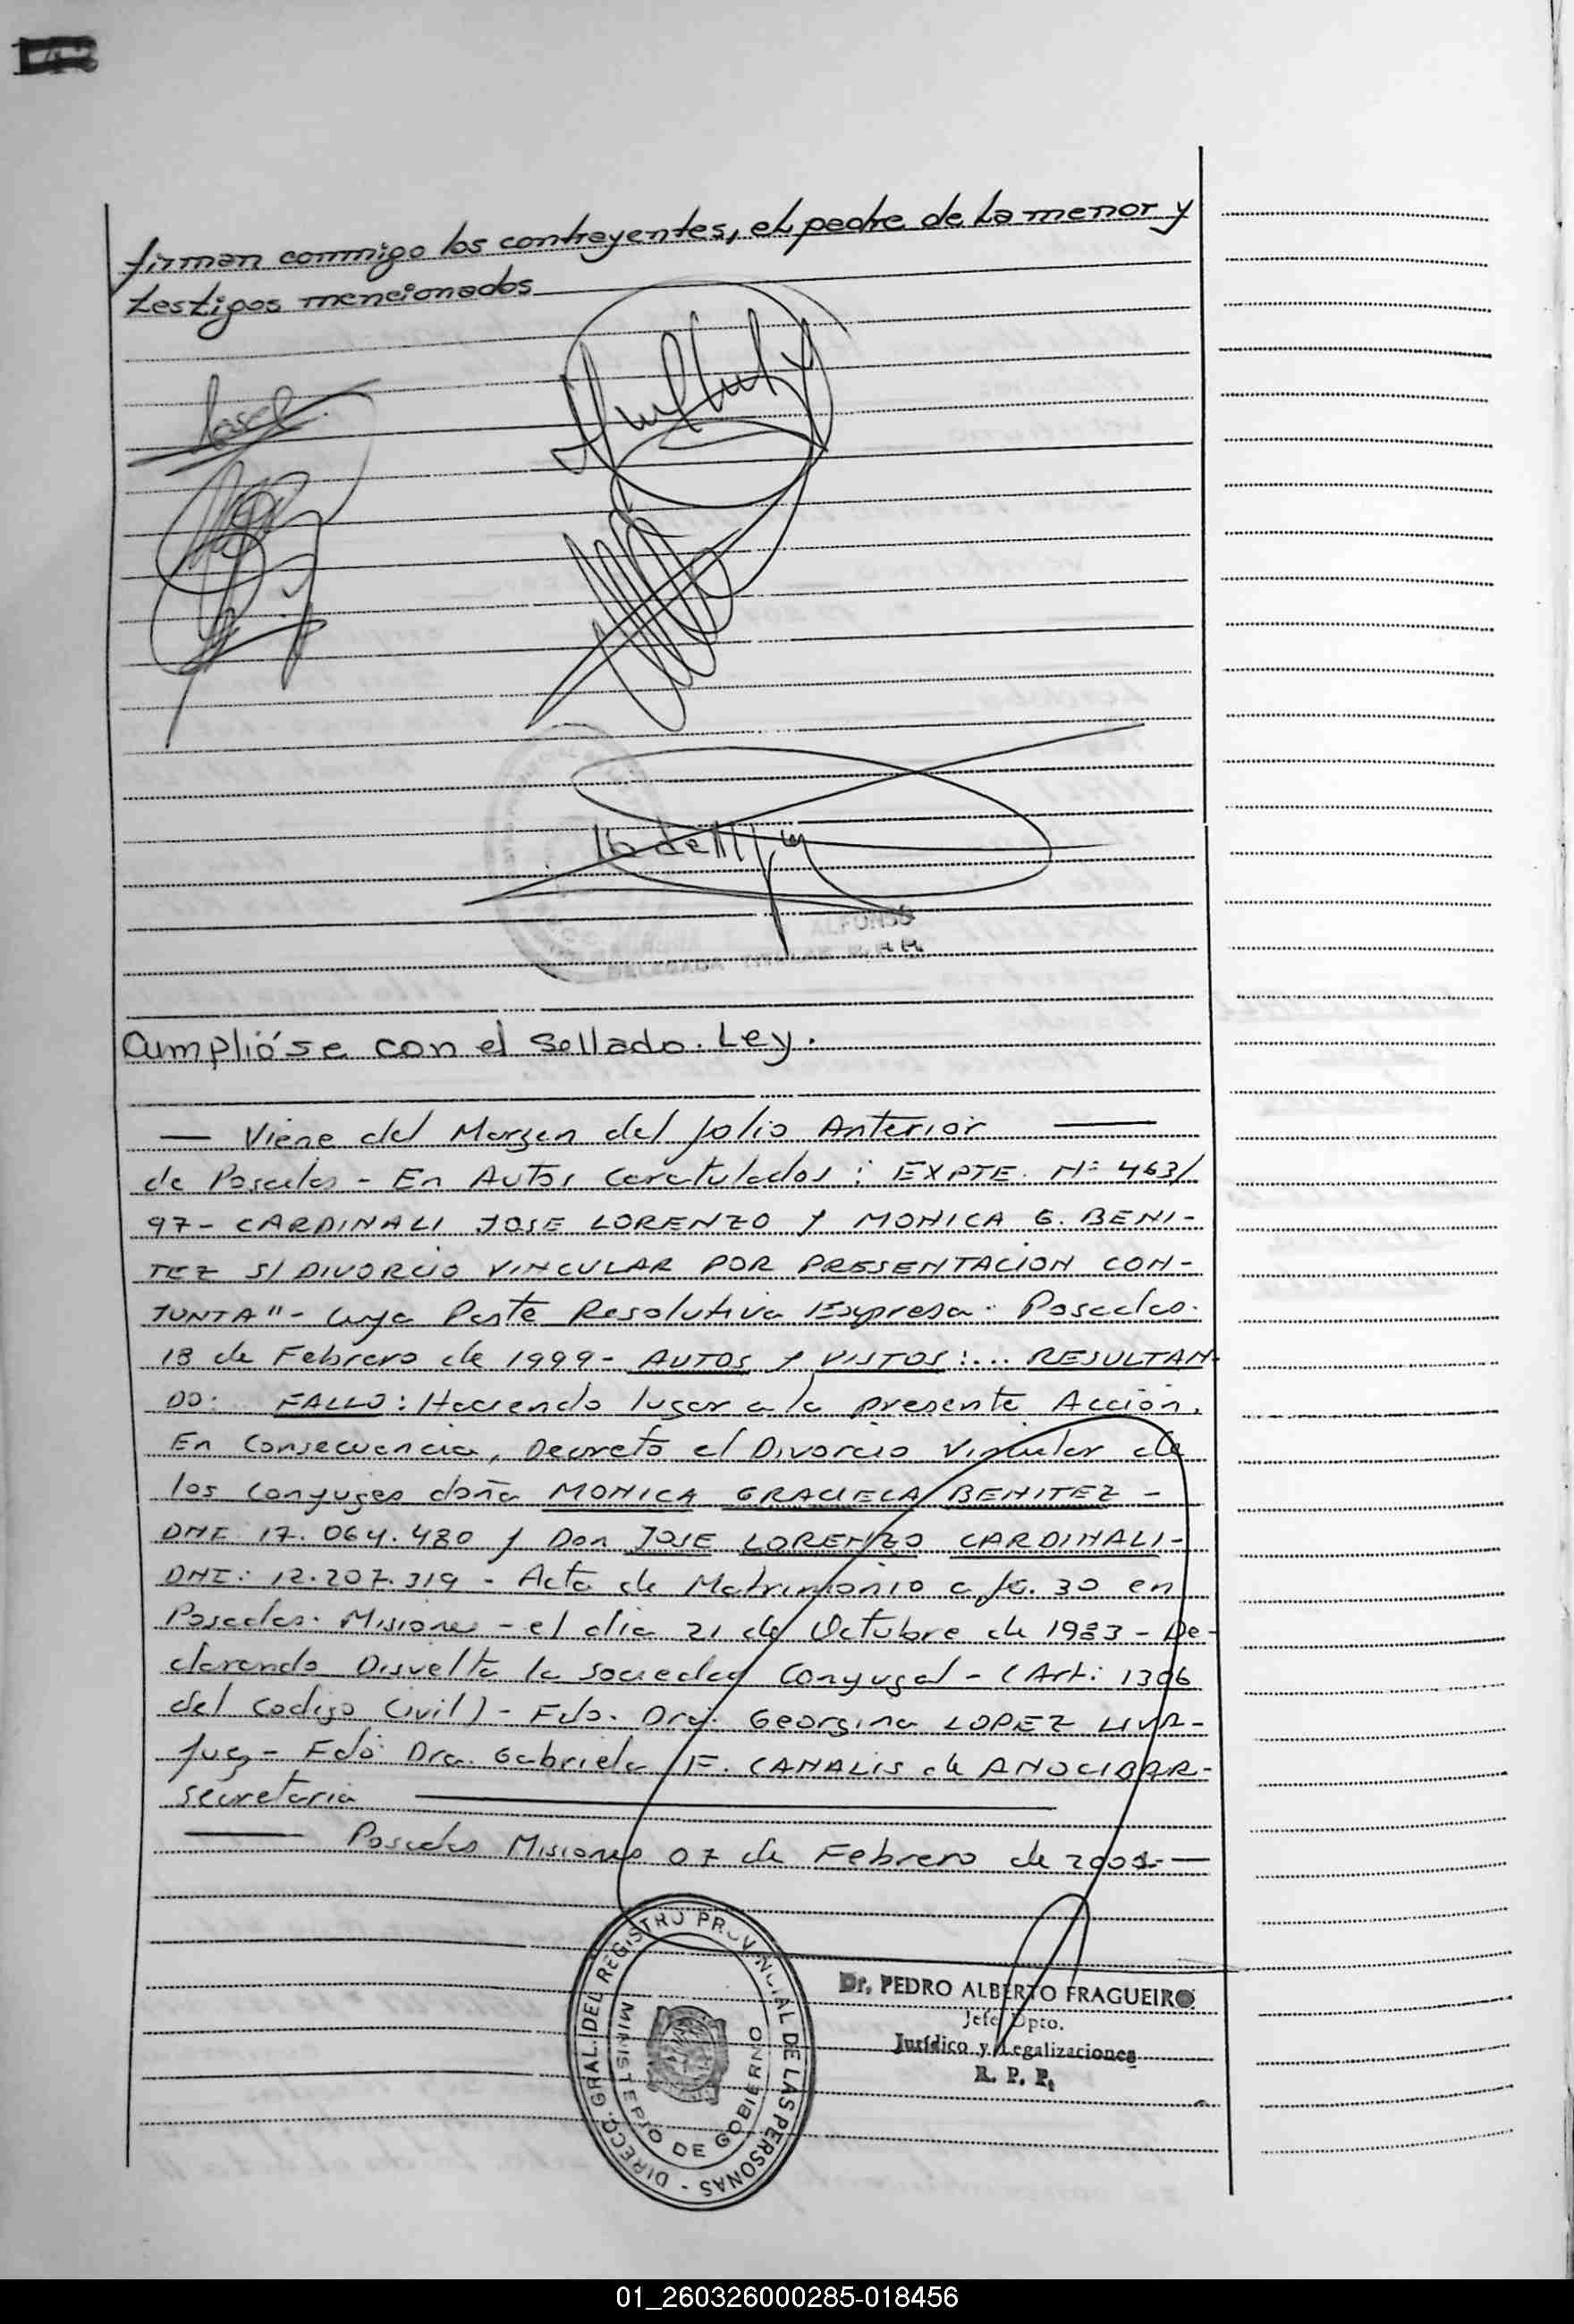 firman conmigo los contrayentes, el padre de la menor y
testigos mencionados
ALFONSO
DELEGADA TITULAR R.P.P.
Cumplióse con el Sellado. Ley.
— Viene del Margen del folio Anterior —
de Posadas - En Autos Caratulados: EXPTE. Nº 463/
97 - CARDINALI JOSE LORENZO Y MONICA G. BENI-
TEZ S/ DIVORCIO VINCULAR POR PRESENTACION CON-
JUNTA" - Cuya Parte Resolutiva Expresa: Posadas.
18 de Febrero de 1999 - AUTOS Y VISTOS:... RESULTAN-
DO: FALLO: Haciendo lugar a la presente Acción.
En Consecuencia, Decreto el Divorcio Vincular de
los Conyuges doña MONICA GRACIELA BENITEZ -
DNI 17.064.480 y Don JOSE LORENZO CARDINALI -
DNI: 12.207.319 - Acta de Matrimonio a fs. 30 en
Posadas. Misiones - el dia 21 de Octubre de 1983 - De-
clarando Disuelta la sociedad Conyugal - (Art: 1306
del Codigo Civil) - Fdo. Dra. Georgina LOPEZ LIVA-
Juez - Fdo. Dra. Gabriela F. CANALIS de ANOCIBAR -
secretaria
— Posadas Misiones 07 de Febrero de 2001 —
DIRECC. GRAL. DEL REGISTRO PROVINCIAL DE LAS PERSONAS -
MINISTERIO DE GOBIERNO
Dr. PEDRO ALBERTO FRAGUEIRO
Jefe Dpto.
Jurídico y Legalizaciones
R. P. P.
01_260326000285-018456